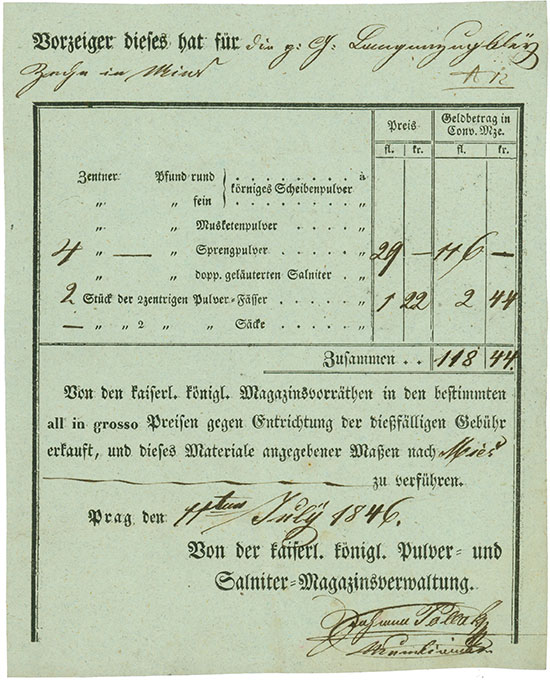 Vorzeiger dieses hat für die p: G: Langenzugbler
Zeche in Mies
N 12
Preis Geldbetrag in Conv. Mze.
fl. kr. fl. kr.
Zentner Pfund rund } körniges Scheibenpulver . . à
„ „ fein . . . . „
„ „ Musketenpulver . . . . . „
4 — „ Sprengpulver . . . . . . „ 29 — 116 —
„ „ dopp. geläuterten Salniter . . „
2 Stück der 2zentrigen Pulver-Fässer . . . . . „ 1 22 2 44
— „ „ 2 „ „ Säcke . . . . . „
Zusammen . . 118 44.
Von den kaiserl. königl. Magazinsvorräthen in den bestimmten
all in grosso Preisen gegen Entrichtung der dießfälligen Gebühr
erkauft, und dieses Materiale angegebener Maßen nach Mies
zu verführen.
Prag den 11ten July 1846.
Von der kaiserl. königl. Pulver- und
Salniter-Magazinsverwaltung.